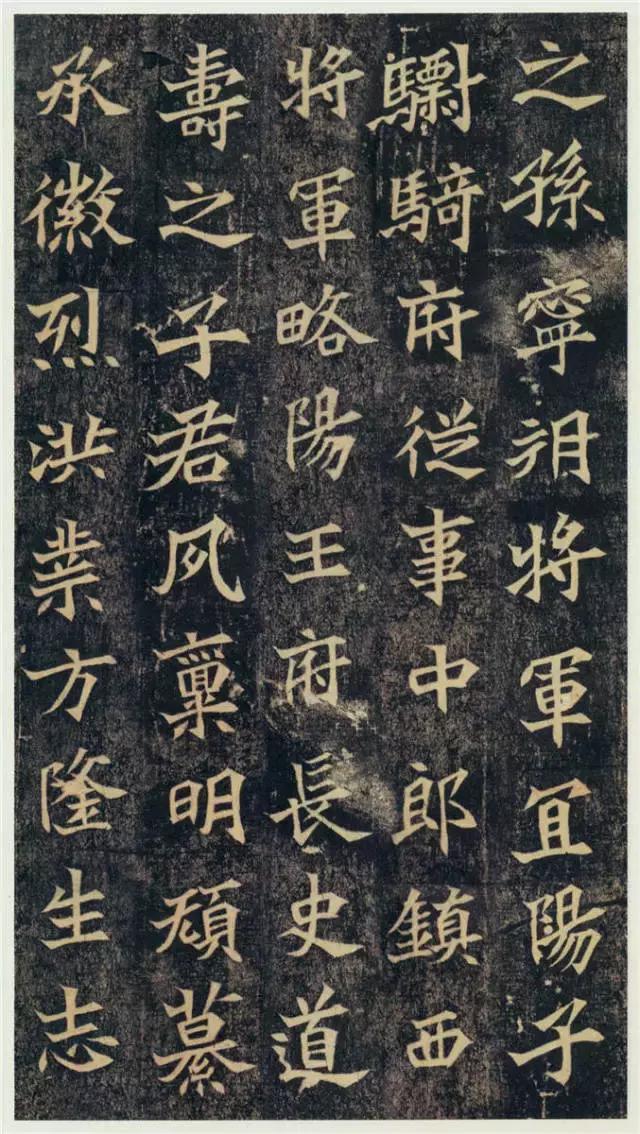 之孫寧朔將軍宜陽子
驃騎府從事中郎鎮西
將軍略陽王府長史道
壽之子君夙稟明頴纂
承徽烈洪業方隆生志